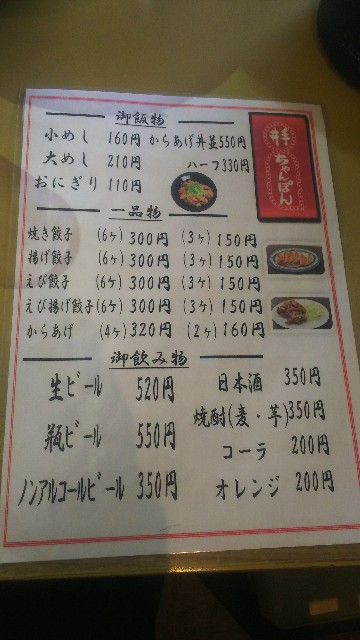 御飯物
小めし 160円 からあげ丼並550円
大めし 210円 ハーフ330円
おにぎり 110円
ちゃんぽん
一品物
焼き餃子 (6ヶ) 300円 (3ヶ) 150円
揚げ餃子 (6ヶ) 300円 (3ヶ) 150円
えび餃子 (6ヶ) 300円 (3ヶ) 150円
えび揚げ餃子(6ヶ) 300円 (3ヶ) 150円
からあげ (4ヶ) 320円 (2ヶ) 160円
御飲み物
生ビール 520円 日本酒 350円
焼酎(麦・芋)350円
瓶ビール 550円 コーラ 200円
ノンアルコールビール 350円 オレンジ 200円